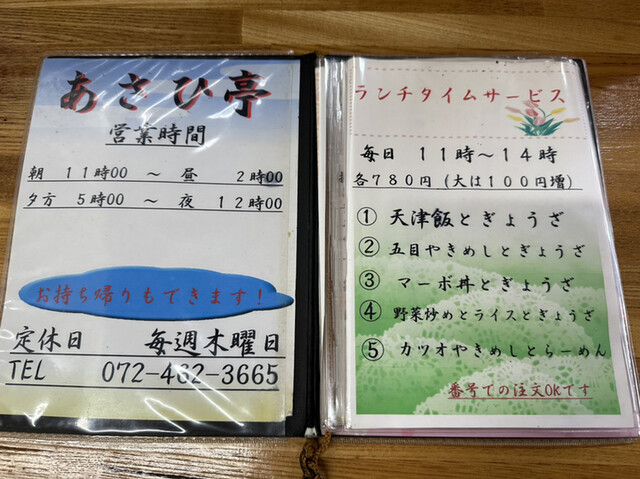 あさひ亭
営業時間
朝 11時00 ～ 昼 2時00
夕方 5時00 ～ 夜 12時00
お持ち帰りもできます!
定休日 毎週木曜日
TEL 072-462-3665
ランチタイムサービス
毎日 11時～14時
各780円(大は100円増)
① 天津飯とぎょうざ
② 五目やきめしとぎょうざ
③ マーボ丼とぎょうざ
④ 野菜炒めとライスとぎょうざ
⑤ カツオやきめしとらーめん
番号での注文OKです